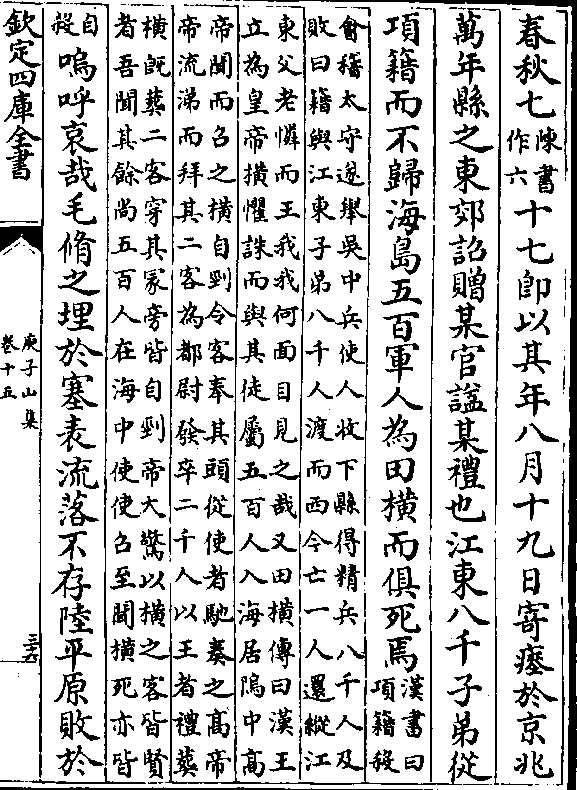 春秋七陳書作六十七即以其年八月十九日寄瘞於京兆
萬年縣之東郊詔贈某官諡某禮也江東八千子弟從
項籍而不歸海島五百軍人為田橫而俱死焉漢書曰項籍殺
會稽太守遂舉吳中兵使人收下縣得精兵八千人及
敗曰籍與江東子弟八千人渡而西今亡一人還縱江
東父老憐而王我我何面目見之哉又田橫傳曰漢王
立為皇帝橫懼誅而與其徒屬五百人入海居隝中高
帝聞而召之橫自剄令客奉其頭從使者馳奏之高帝
帝流涕而拜其二客為都尉發卒二千人以王者禮葬
橫既葬二客穿其冢旁皆自剄帝大驚以橫之客皆賢
者吾聞其餘尚五百人在海中使使召至聞橫死亦皆
自殺嗚呼哀哉毛脩之埋於塞表流落不存陸平原敗於
欽定四庫全書
庾子山集
卷十五
三六